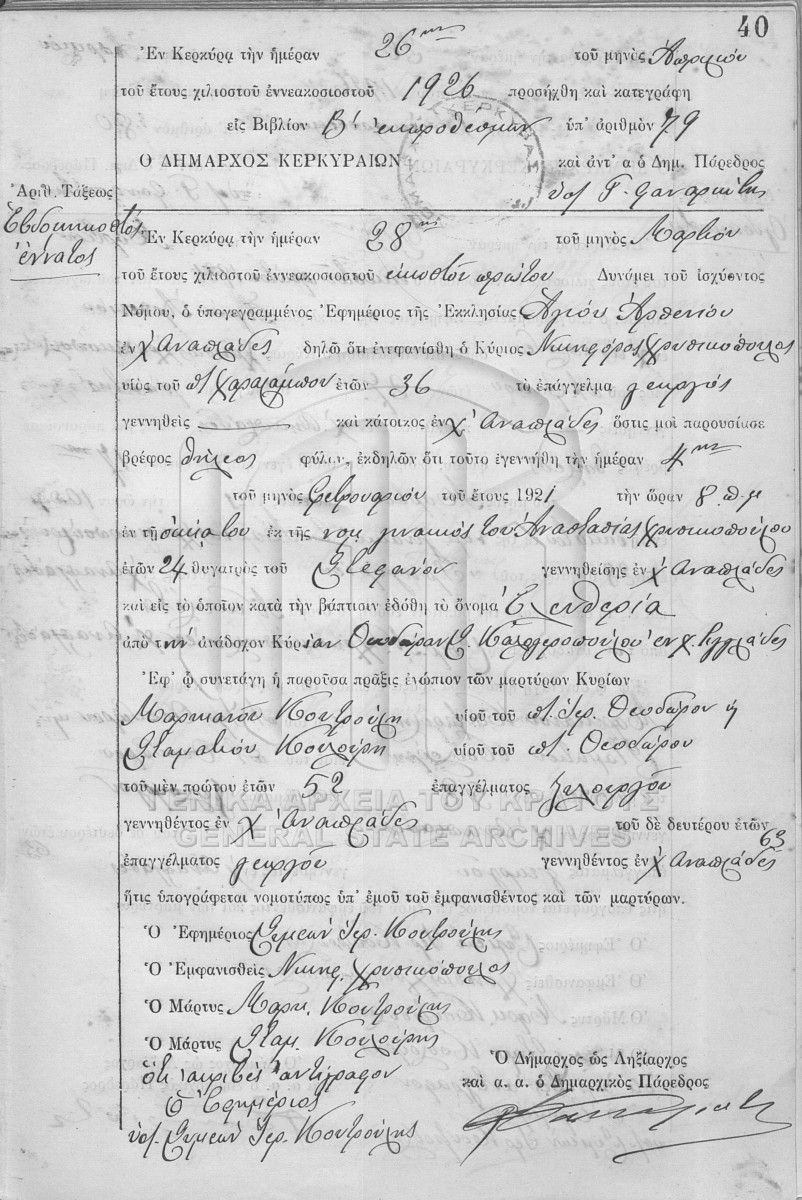 40
Ἐν Κερκύρᾳ τὴν ἡμέραν 26ην τοῦ μηνὸς Ἀπριλίου
τοῦ ἔτους χιλιοστοῦ ἐννεακοσιοστοῦ 1926 προσήχθη καὶ κατεγράφη
εἰς Βιβλίον Β΄ ἐκπροθέσμων ὑπ' ἀριθμὸν 79
Ὁ ΔΗΜΑΡΧΟΣ ΚΕΡΚΥΡΑΙΩΝ καὶ ἀντ' α ὁ Δημ. Πάρεδρος
Ἀριθ. Τάξεως
Ἑβδομηκοστὸς
ἔννατος
Ἐν Κερκύρᾳ τὴν ἡμέραν 28ην τοῦ μηνὸς Μαρτίου
τοῦ ἔτους χιλιοστοῦ ἐννεακοσιοστοῦ εἰκοστοῦ πρώτου Δυνάμει τοῦ ἰσχύοντος
Νόμου, ὁ ὑπογεγραμμένος Ἐφημέριος τῆς Ἐκκλησίας Ἁγίου Ἀρσενίου
ἐν χ. Αναπλάδες δηλῶ ὅτι ἐνεφανίσθη ὁ Κύριος Νικηφόρος Χρυσικόπουλος
υἱὸς τοῦ πτ Χαραλάμπου ἐτῶν 36 τὸ ἐπάγγελμα γεωργός
γεννηθεὶς καὶ κάτοικος ἐν χ. Αναπλάδες ὅστις μοὶ παρουσίασε
βρέφος θήλεος φύλου, ἐκδηλῶν ὅτι τοῦτο ἐγεννήθη τὴν ἡμέραν 4ην
τοῦ μηνὸς Φεβρουαρίου τοῦ ἔτους 1921 τὴν ὥραν 8 π.μ
ἐν τῇ οἰκίᾳ του ἐκ τῆς νομ. γυναικός του Αναστασίας Χρυσικοπούλου
ἐτῶν 24 θυγατρὸς τοῦ Στεφάνου γεννηθείσης ἐν χ Αναπλάδες
καὶ εἰς τὸ ὁποῖον κατὰ τὴν βάπτισιν ἐδόθη τὸ ὄνομα Ελευθερία
ἀπὸ τὴν ἀνάδοχον Κυρίαν Θεοδώραν Σ. Καλογεροπούλου ἐν χ.
Ἐφ' ᾧ συνετάγη ἡ παροῦσα πρᾶξις ἐνώπιον τῶν μαρτύρων Κυρίων
Μαρκιανοῦ Κουτρούλη υἱοῦ τοῦ πτ. Ιερ. Θεοδώρου ἡ
Σταματίου Κουλούρη υἱοῦ τοῦ πτ. Θεοδώρου
τοῦ μὲν πρώτου ἐτῶν 52 ἐπαγγέλματος ξυλουργοῦ
γεννηθέντος ἐν χ Αναπλάδες τοῦ δὲ δευτέρου ἐτῶν 63
ἐπαγγέλματος γεωργοῦ γεννηθέντος ἐν χ Αναπλάδες
ἥτις ὑπογράφεται νομοτύπως ὑπ' ἐμοῦ τοῦ ἐμφανισθέντος καὶ τῶν μαρτύρων.
Ὁ Ἐφημέριος Συμεὼν Ιερ. Κουτρούλης
Ὁ Ἐμφανισθεὶς Νικηφ. Χρυσικόπουλος
Ὁ Μάρτυς Μαρκ. Κουτρούλης
Ὁ Μάρτυς Σταμ. Κουλούρης
Ὅτι ἀκριβὲς ἀντίγραφον
Ὁ Ἐφημέριος
ὑπ. Συμεὼν Ιερ. Κουτρούλης
Ὁ Δήμαρχος ὡς Ληξίαρχος
καὶ α. α. ὁ Δημαρχικὸς Πάρεδρος
ΓΕΝΙΚΑ ΑΡΧΕΙΑ ΤΟΥ ΚΡΑΤΟΥΣ
GENERAL STATE ARCHIVES